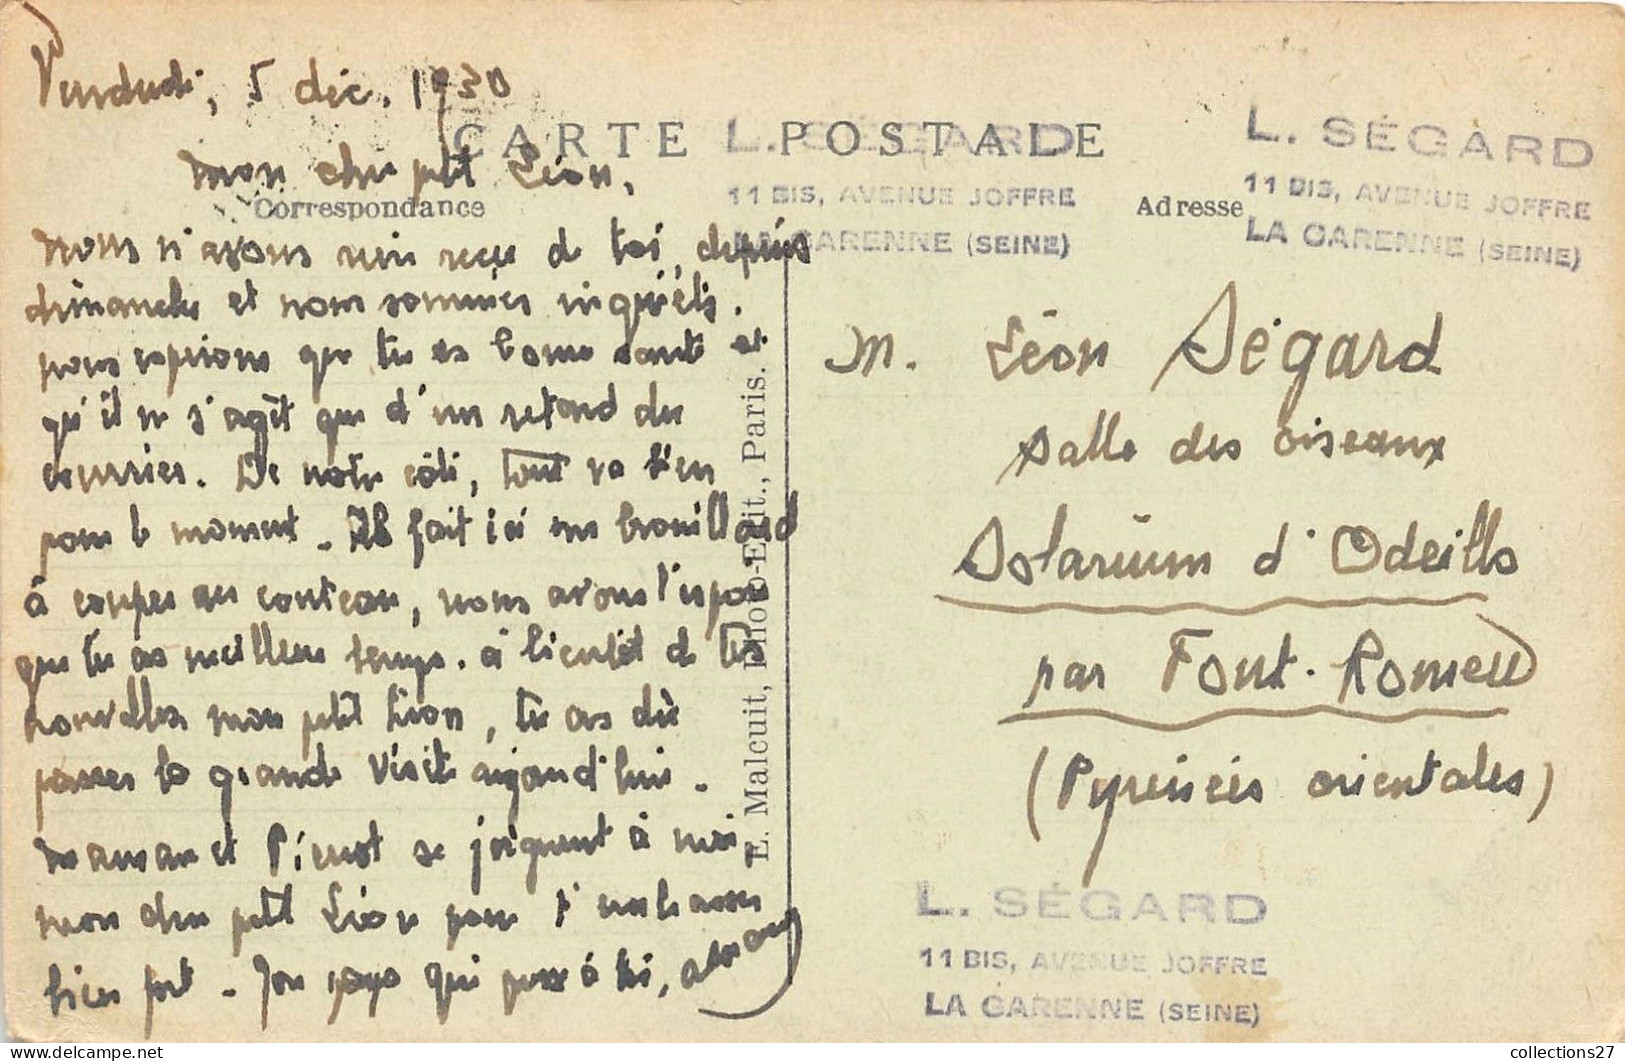 Vendredi, 5 déc. 1930
CARTE POSTALE
mon cher ptit Léon,
Correspondance
nous n'avons rien reçu de toi, depuis
dimanche et nous sommes inquiets.
nous espérons que tu es bonne santé et
qu'il ne s'agit que d'un retard du
courrier. De notre côté, tout va bien
pour le moment. Il fait ici un brouillard
à couper au couteau, nous avons l'espoir
que tu as meilleur temps. à bientôt de tes
nouvelles mon ptit Léon, tu as dû
passer la grande visite aujourd'hui.
maman et Pierrot se joignent à moi,
mon cher ptit Léon pour t'embrasser
bien fort. Ton papa qui pense à toi,
E. Malcuit, Photo-Edit., Paris.
L. SÉGARD
11 BIS, AVENUE JOFFRE
LA GARENNE (SEINE)
L. SÉGARD
11 BIS, AVENUE JOFFRE
LA GARENNE (SEINE)
Adresse
M. Léon Ségard
salle des oiseaux
Solarium d'Odeillo
par Font-Romeu
(Pyrénées orientales)
L. SÉGARD
11 BIS, AVENUE JOFFRE
LA GARENNE (SEINE)
collections27